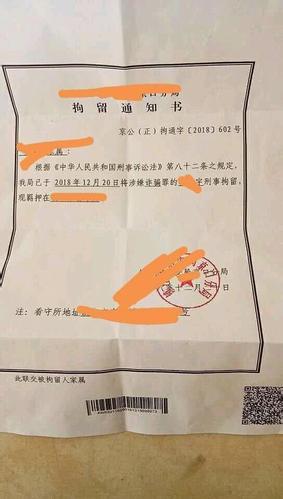 分局
拘留通知书
京公（正）拘通字［2018］602号
属：
根据《中华人民共和国刑事诉讼法》第八十二条之规定，
我局已于2018年12月20日将涉嫌诈骗罪的 刑事拘留，
现羁押在
分局
十二月 日
注：看守所地址
此联交被拘留人家属